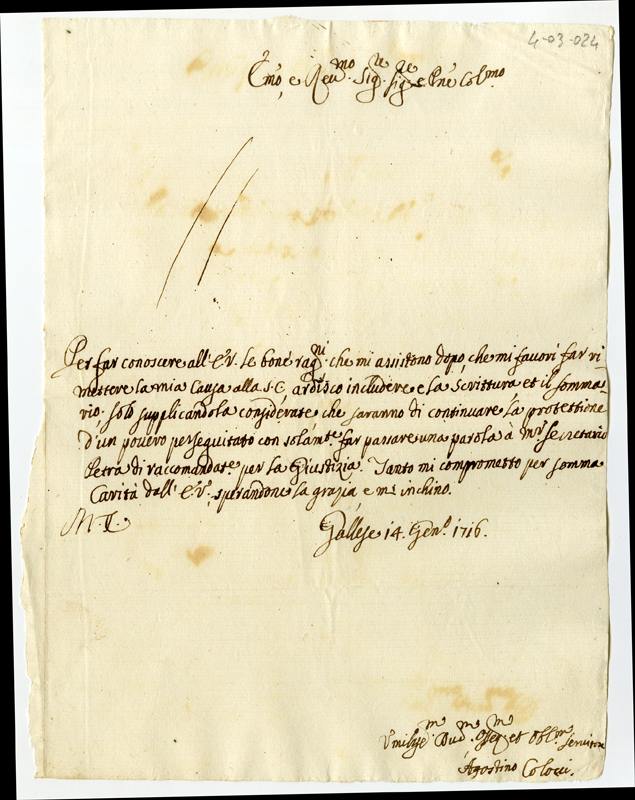 4-03-024
Em̃o, e Reu.mo Sig.re Sig.re e Pñe Col.mo
Per far conoscere all'E.V. le bone rag.ni che mi assistono dopo, che mi favorì far ri
mettere la mia Causa alla S.C, ardisco includere e la Scrittura et il somma
rio, solo supplicandola considerate che saranno di continuare la protettione
d'un povero perseguitato con solam.te far passare una parola à Mr Secretario
Petra di raccomandat.e per la Giustizia. Tanto mi comprometto per somma
Carità dall'E.V., sperandone la grazia e m'inchino.
Gallese 14. Genn.o 1716.
Umiliss.m Diu.m Osseq.m et Obl.m Servitore
Agostino Colocci.